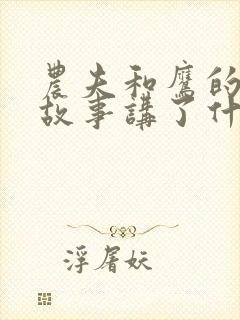 農夫和鷹的
故事講了什
浮屠妖